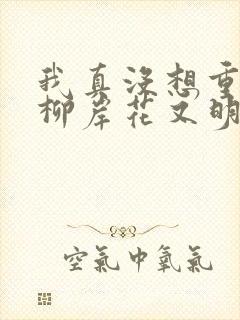 我真没想重
柳岸花又明
空氣中氧氣